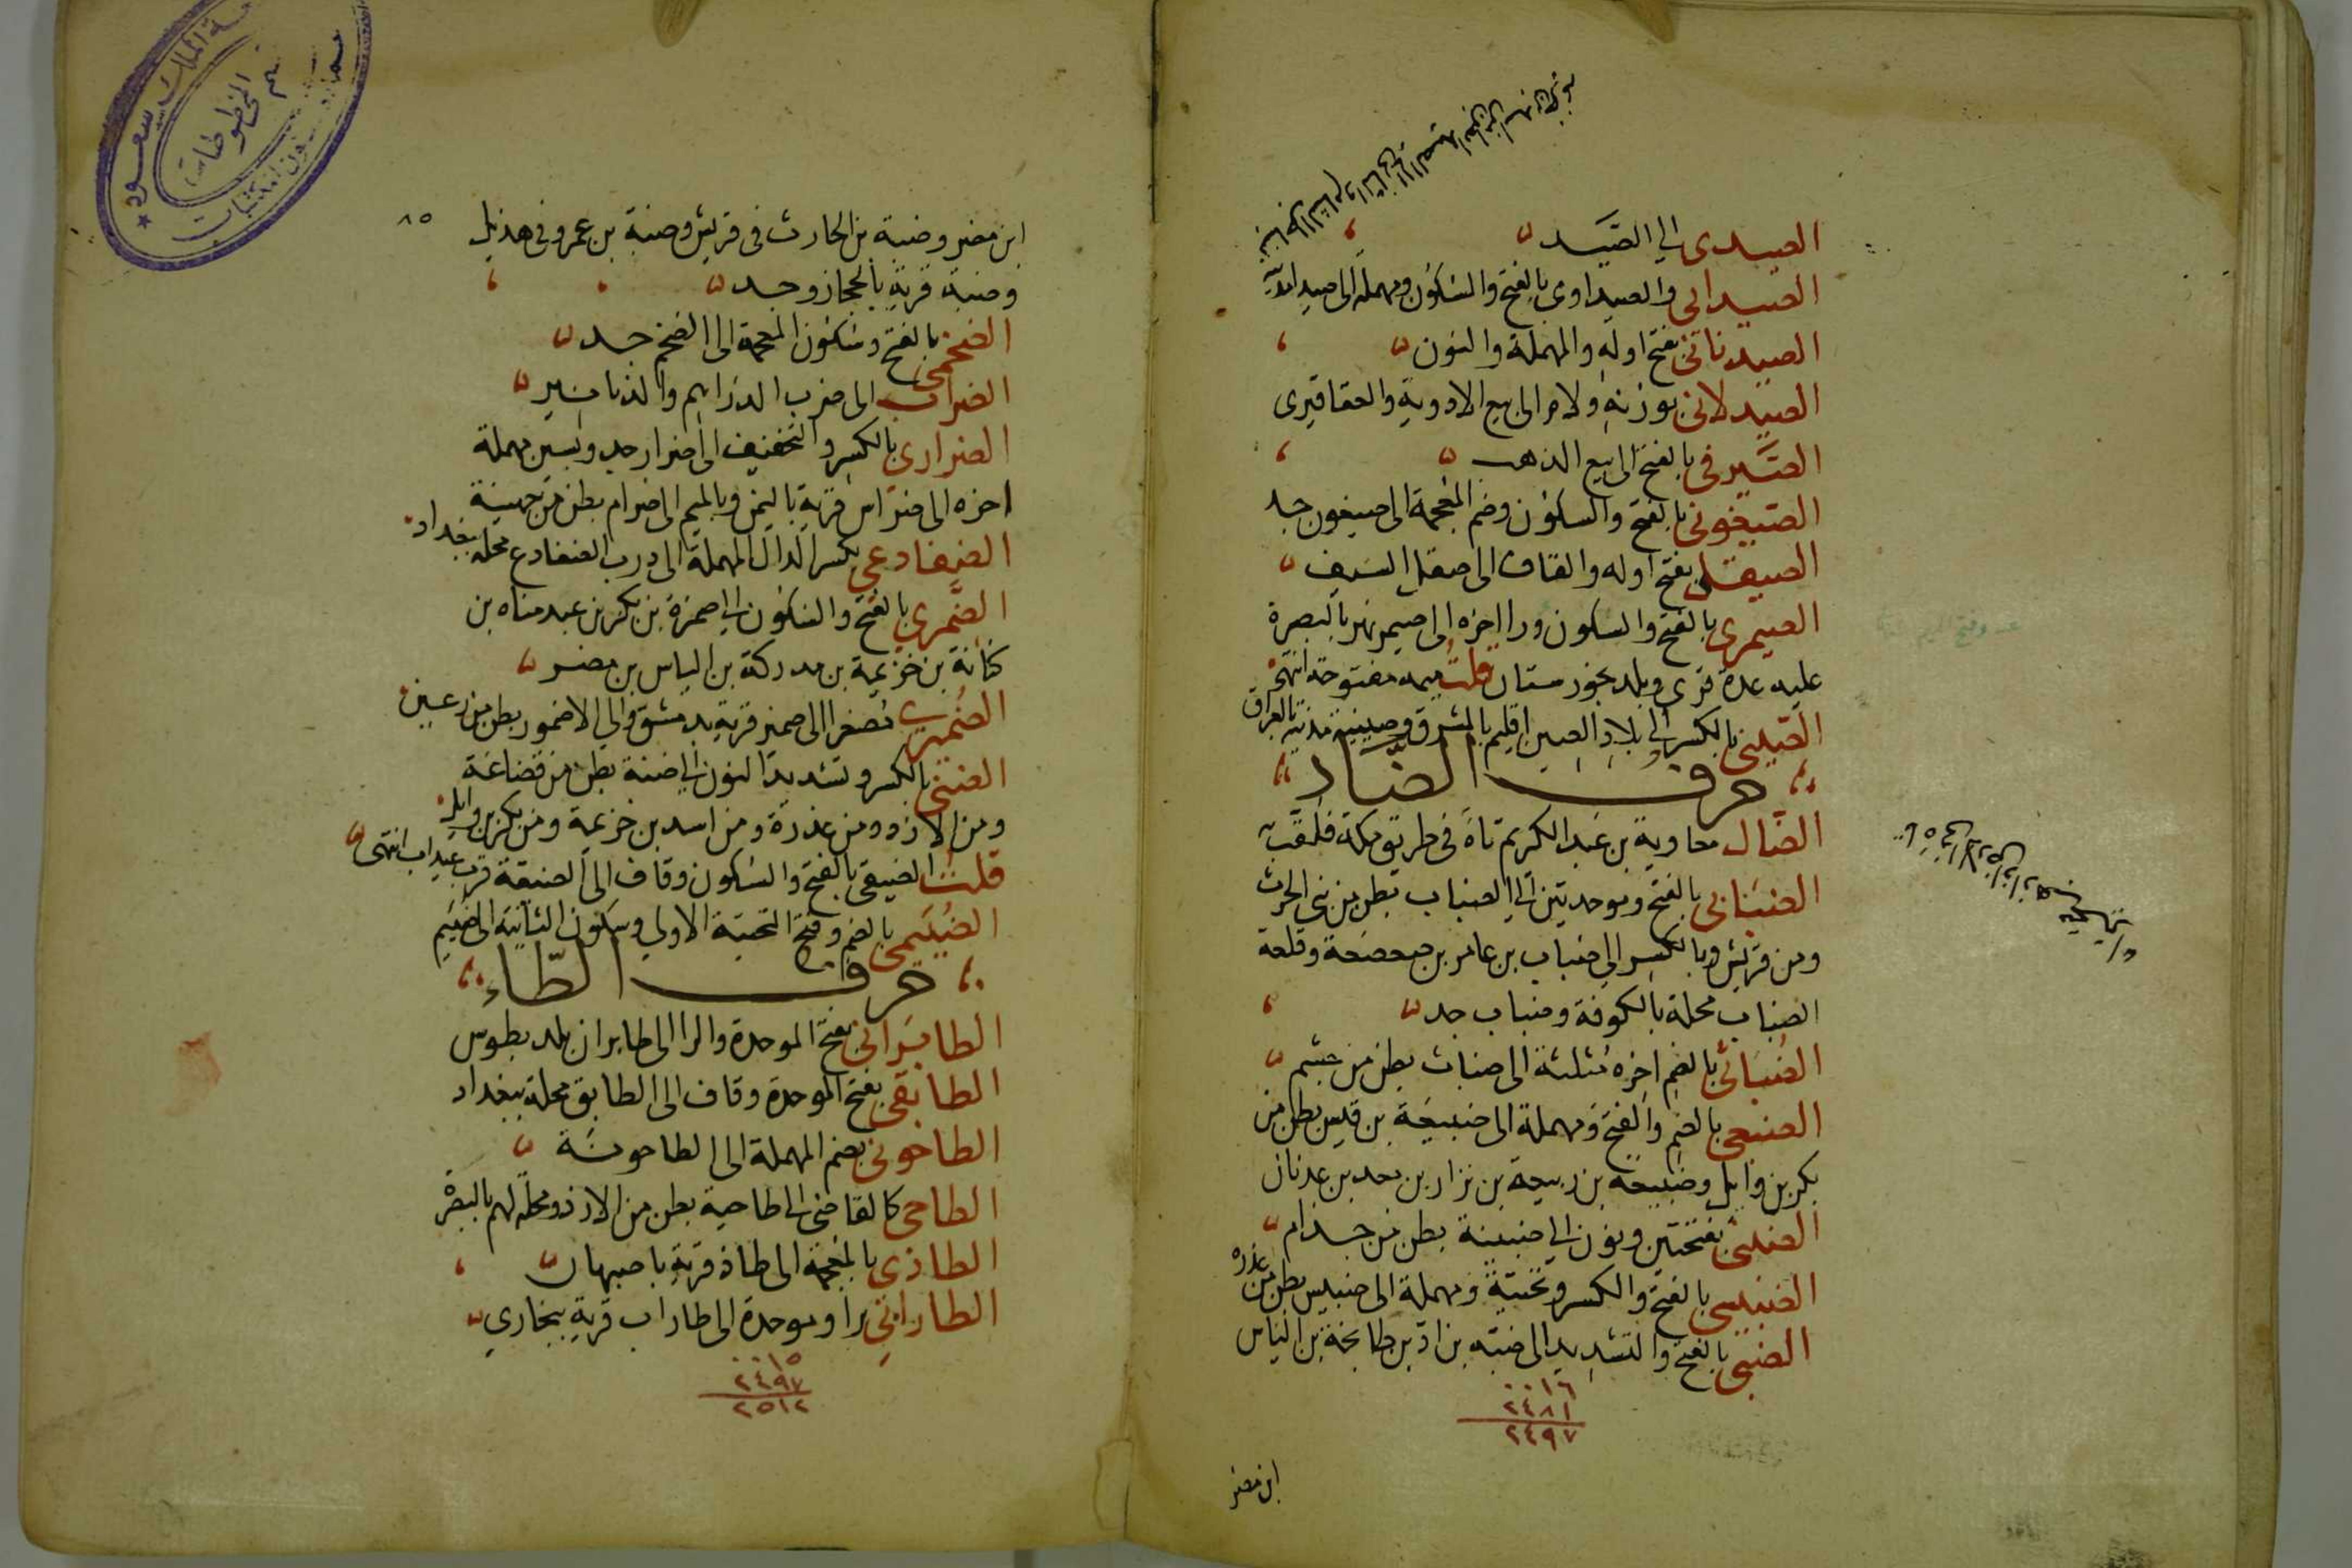 الصيدى الى الصيد
الصيدانى والصيداوى بالفتح والسكون ومهملة الى صيدا
الصيدنانى بفتح اوله والمهملة والنون
الصيدلانى بوزنه ولام الى بيع الادوية والعقاقيرى
الصيرفى بالفتح الى بيع الذهب
الصيغونى بالفتح والسكون وضم المعجمة الى صيغون جد
الصيقلى بفتح اوله والقاف الى صقل السيف
الصيمرى بالفتح والسكون ورا اخره الى صيمر نهر بالبصرة
عليه عدة قرى وبلد بخورستان قلت ميمه مفتوحة انتهى
الصينى بالكسر الى بلاد الصين اقليم بالمشرق وصينية مدينة بالعراق
حرف الضاد
الضال معاوية بن عبد الكريم تاه فى طريق مكة فلقب
الضبابى بالفتح وموحدتين الى الضباب بطن من بنى الحرث
ومن قريش وبالكسر الى ضباب بن عامر بن صعصعة وقلعة
الضباب محلة بالكوفة وضباب جد
الضباثى بالضم اخره مثلثة الى ضباث بطن من جشم
الضبعى بالضم والفتح ومهملة الى ضبيعة بن قيس بطن من
بكر بن وايل وضبيعة بن ربيعة بن نزار بن معد بن عدنان
الضبنى بفتحتين ونون الى ضبينة بطن من جذام
الضبيسى بالفتح والكسر وتحتية ومهملة الى ضبيس بطن من عذرة
الضبى بالفتح والتشديد الى ضبة بن اد بن طابخة بن الياس
٠٠١٦
٢٤٨١
٢٤٩٧
ابن مضر
٨٥
ابن مضر وضبة بن الحارث فى قريش وضبة بن عمرو فى هذيل
وضبة قرية بالحجاز وجد
الضخمى بالفتح وسكون المعجمة الى الضخم جد
الضراب الى ضرب الدراهم والدنانير
الضرارى بالكسر والتخفيف الى ضرار جد وبسين مهملة
اخره الى ضراس قرية باليمن وبالميم الى ضرام بطن من جهينة
الضفادعى بكسر الدال المهملة الى درب الضفادع محلة ببغداد
الضمرى بالفتح والسكون الى ضمرة بن بكر بن عبد مناه بن
كنانة بن خزيمة بن مدركة بن الياس بن مضر
الضميرى مصغرا الى ضمير قرية بدمشق والى الاضمور بطن من رعين
الضنى بالكسر وتشديد النون الى ضنة بطن من قضاعة
ومن الازد ومن عذرة ومن اسد بن خزيمة ومن بكر بن وايل
قلت الضيقى بالفتح والسكون وقاف الى الضيقة قرب عيداب انتهى
الضييمى بالضم وفتح التحتية الاولى وسكون الثانية الى ضييم
حرف الطاء
الطابرانى بفتح الموحدة والرا الى طابران بلد بطوس
الطابقى بفتح الموحدة وقاف الى الطابق محلة ببغداد
الطاحونى بضم المهملة الى الطاحونة
الطاحى كالقاضى الى طاحية بطن من الازد ومحلة لهم بالبصرة
الطاذى بالمعجمة الى طاذ قرية باصبهان
الطارابى برا وموحدة الى طاراب قرية ببخارى
٠٠١٥
٢٤٩٧
٢٥١٢
الملك سعود
المخطوطات